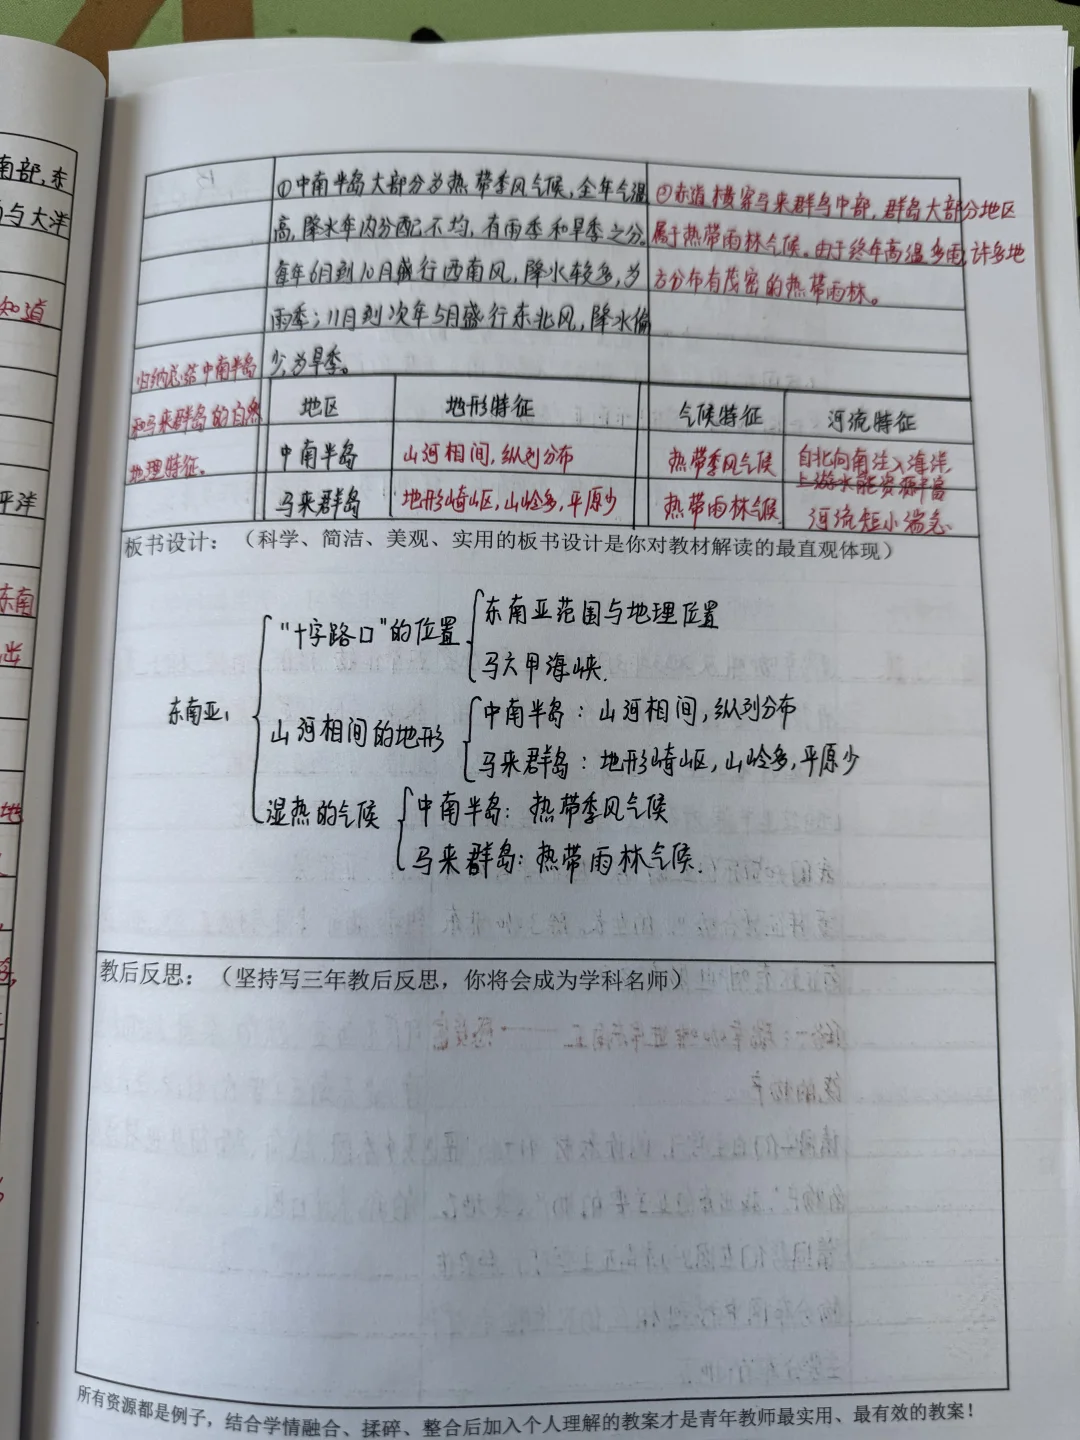 南部,东
与大洋
知道
平洋
东南
出
地
①中南半岛大部分为热带季风气候,全年气温
高,降水年内分配不均,有雨季和旱季之分。
每年6月到10月盛行西南风,降水较多,为
雨季;11月到次年5月盛行东北风,降水偏
少,为旱季。
②赤道横穿马来群岛中部,群岛大部分地区
属于热带雨林气候。由于终年高温多雨,许多地
方分布有茂密的热带雨林。
归纳总结中南半岛
和马来群岛的自然
地理特征。
地区 地形特征 气候特征 河流特征
中南半岛 山河相间,纵列分布 热带季风气候 自北向南注入海洋,
上游水能资源丰富
马来群岛 地形崎岖,山岭多,平原少 热带雨林气候 河流短小湍急
板书设计:(科学、简洁、美观、实用的板书设计是你对教材解读的最直观体现)
“十字路口”的位置 东南亚范围与地理位置
马六甲海峡.
东南亚
山河相间的地形 中南半岛:山河相间,纵列分布
马来群岛:地形崎岖,山岭多,平原少
湿热的气候 中南半岛:热带季风气候
马来群岛:热带雨林气候.
教后反思:(坚持写三年教后反思,你将会成为学科名师)
所有资源都是例子,结合学情融合、揉碎、整合后加入个人理解的教案才是青年教师最实用、最有效的教案!